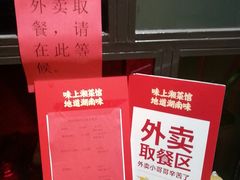 外卖取
餐，请
在此等
候。
味上湘菜馆
地道湖南味
味上湘菜馆
地道湖南味
外卖
取餐区
外卖小哥哥辛苦了